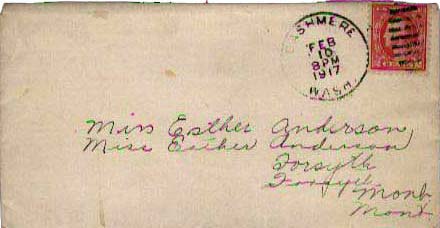 CASHMERE
FEB
10
8PM
1917
WASH.
Miss Esther Anderson
Miss Esther Anderson
Forsyth
Forsyth
Mont
Mont